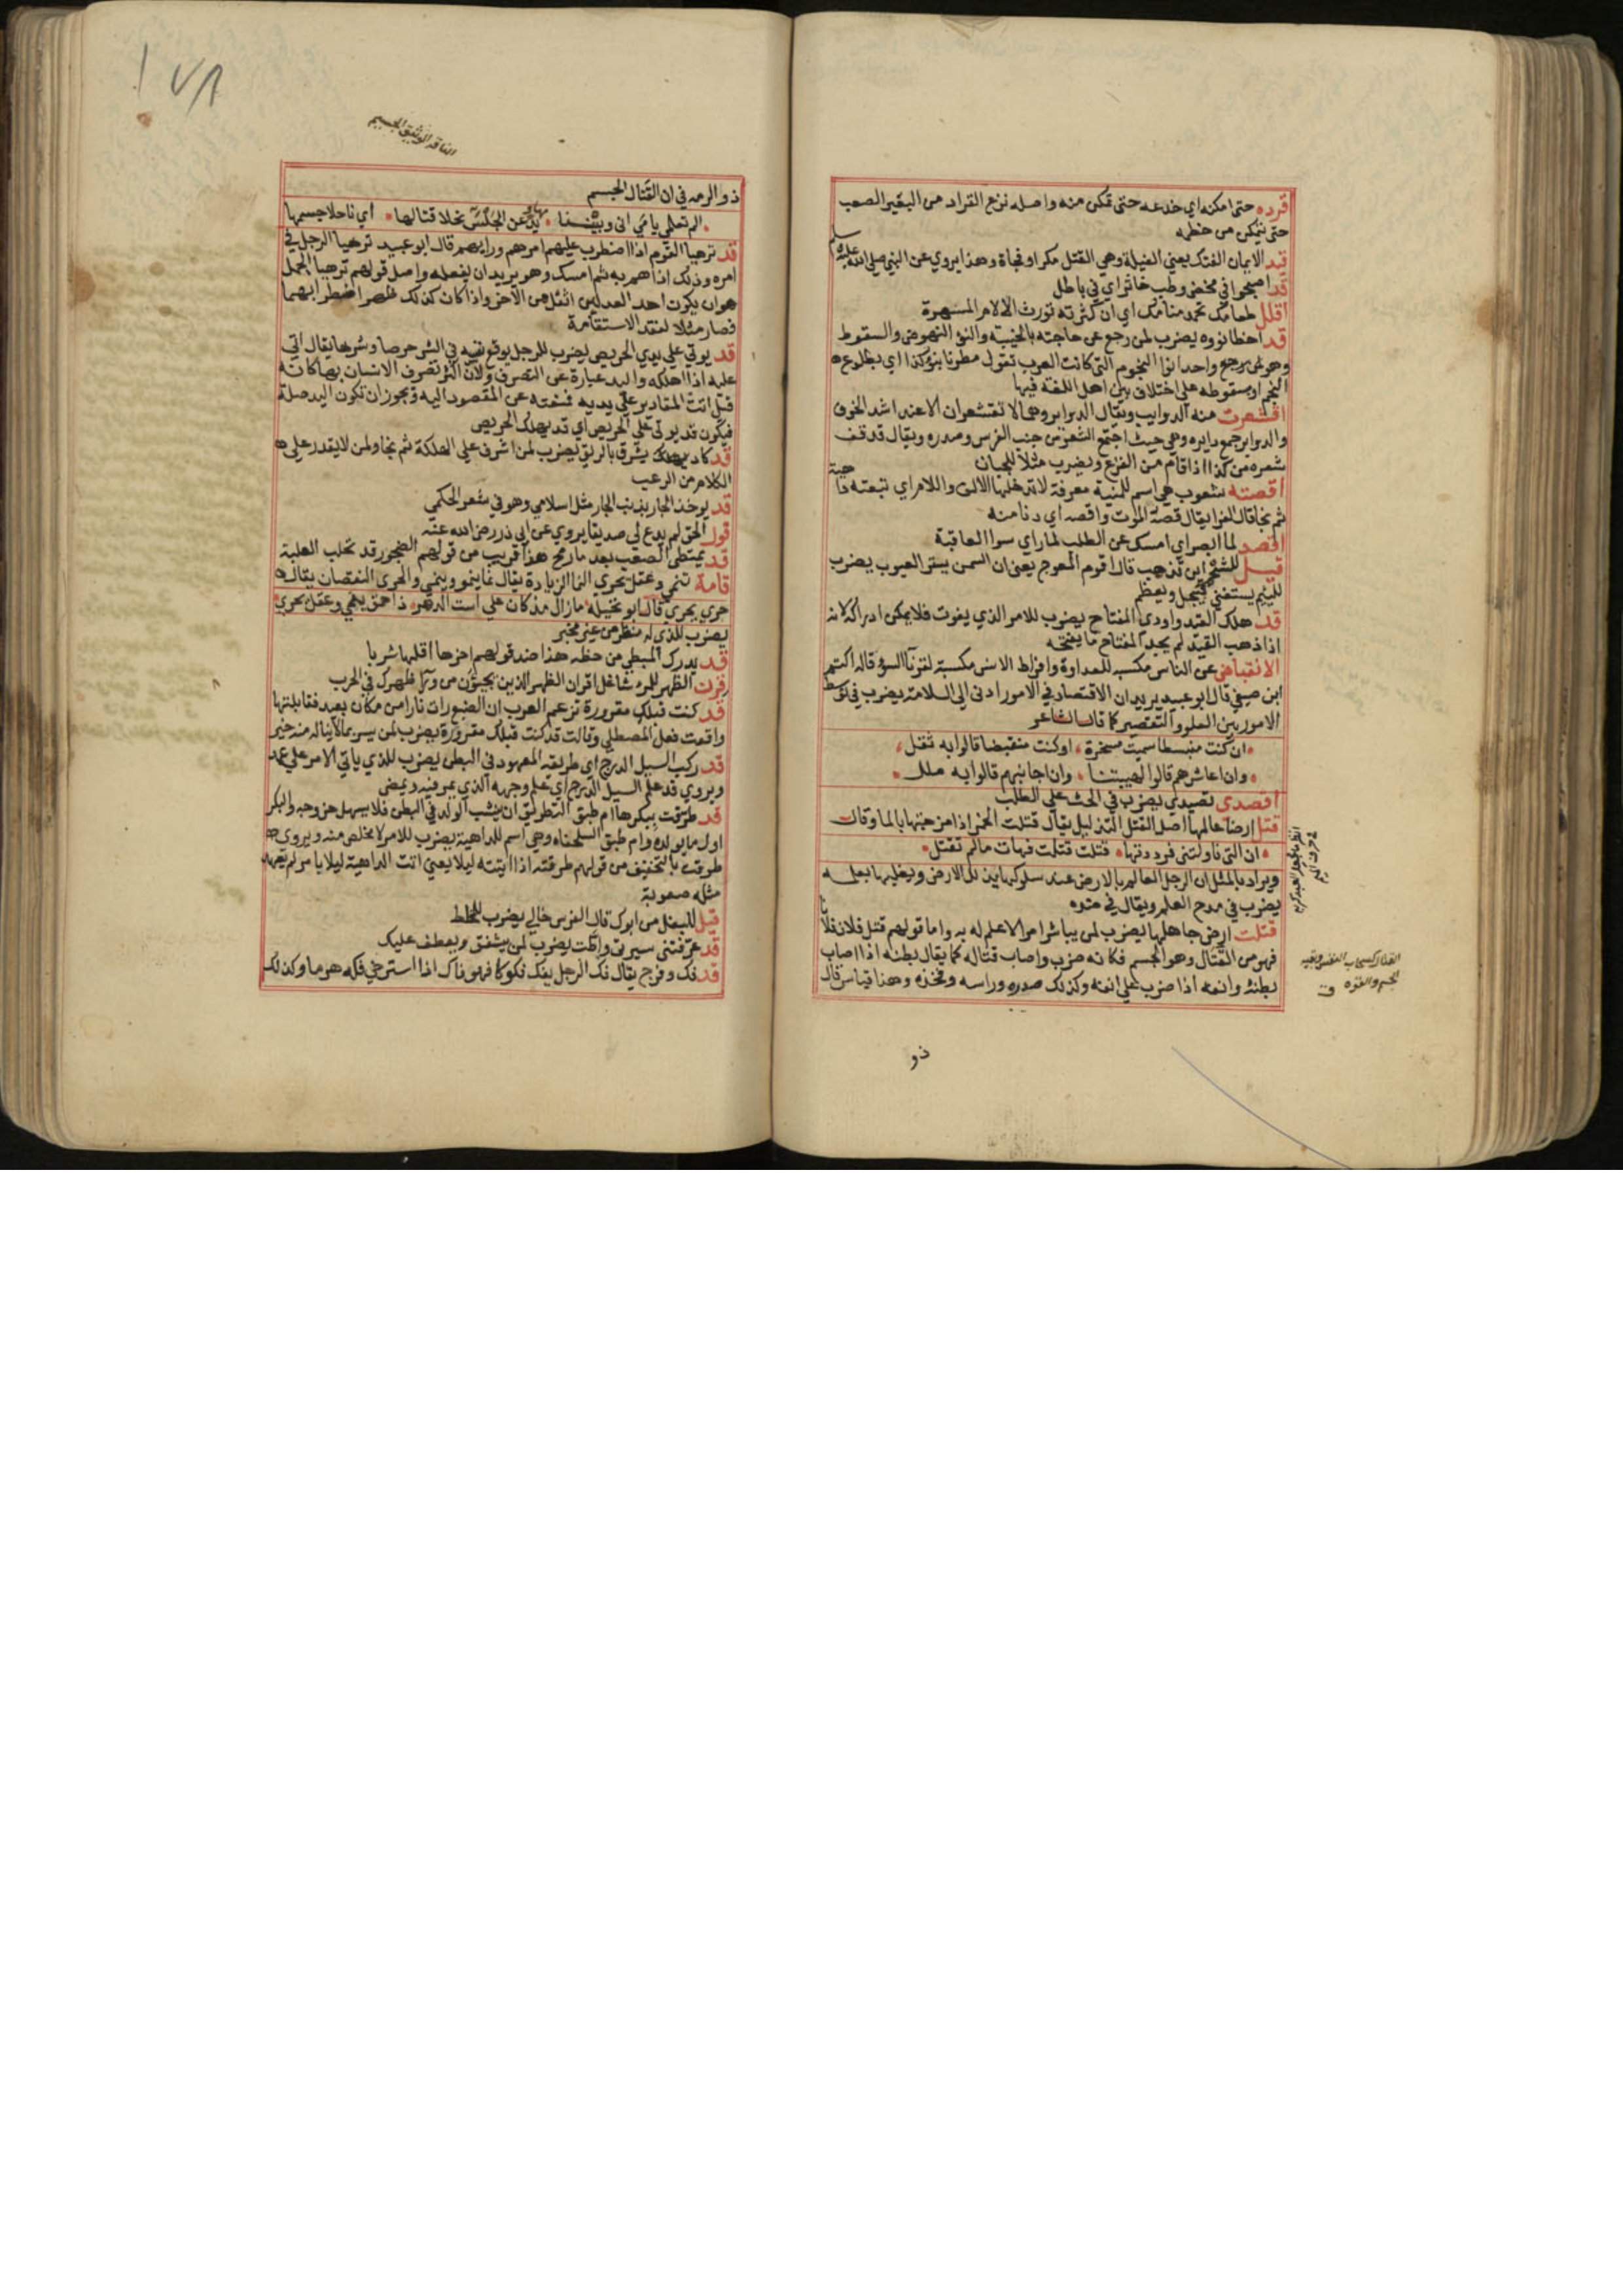 قرده حتى امكنه اي خدعه حتى تمكن منه واصله نزع القراد من البعير الصعب
حتى يتمكن من خطمه
قيد الايمان الفتك يعني الغيلة وهي القتل مكرا وفجاة وهذا يروي عن النبي صلي الله عليه وسلم
قد اصبحوا في مخض وطب خاثر اي في باطل
اقلل طعامك تحمد منامك اي ان كثرته تورث الالام المسهرة
قد اخطا نوه يضرب لمن رجع عن حاجته بالخيبة والنوء النهوض والسقوط
وهو واحد انوا النجوم التي كانت العرب تقول مطرنا بنوء كذا اي بطلوع
النجم او سقوطه على اختلاف بين اهل اللغة فيها
اقشعرت منه الدوايب ويقال الدواير وهما لا تقشعران الا عند اشد الخوف
والدواير جمع دايره وهي حيث اجتمع الشعر من جنب الفرس وصدره ويقال قد قف
شعره من كذا اذا قام من الفزع ويضرب مثلا للجبان
اقصته شعوب هي اسم للمنية معرفة لا تدخلها الالف واللام اي تبعته داهية
ثم نجا قال الفرا يقال قصه الموت واقصه اي دنا منه
اقصر لما ابصر اي امسك عن الطلب لما راي سوا العاقبة
قيل للشحم اين تذهب قال اقوم المعوج يعني ان السمن يستر العيوب يضرب
لليئيم يستغني فيبجل ويعظم
قد هلك القيد واودي المفتاح يضرب للامر الذي يفوت فلا يمكن ادراكه لانه
اذا ذهب القيد لم يجد المفتاح ما يفتحه
الانقباض عن الناس مكسبه للعداوة وافراط الانس مكسبة لقرنا السوء قاله اكثم
ابن صيفي قال ابو عبيد يريد ان الاقتصاد في الامور ادنى الي السلامة يضرب في توسط
الامور بين الغلو والتقصير كما قال الشاعر
ان كنت منبسطا سميت مسخرة او كنت منقبضا قالوا به ثقل
وان اعاشرهم قالوا لهيبتنا وان اجانبهم قالوا به ملل
اقصدي تصيدي يضرب في الحث علي الطلب
قتل ارضا عالمها اصل القتل التذليل يقال قتلت الخمر اذا مزجتها بالما وقال
ان التي ناولتني فرددتها قتلت قتلت فهات ما لم تقتل
ويراد بالمثل ان الرجل العالم بالارض عند سلوكها يذلل الارض ويغلبها بعلمه
يضرب في مدح العلم ويقال في ضده
قتلت ارض جاهلها يضرب لمن يباشر امرا لا علم له به واما قولهم قتل فلان فلانا
فهو من القتال وهو الجسم فكانه ضرب واصاب قتاله كما يقال بطنه اذا اصاب
بطنه وانفه اذا ضرب علي انفه وكذلك صدره وراسه وفخذه وهذا قياس قال
ذو
القتال كسحاب النفس وبقية
الجسم والقوة ق
١٧٨
الناقة الوثيق الجسيم
ذو الرمه في ان القتال الجسم
الم تعلمي يا مي اني وبيننا مهاو يدعن الجلس نحلا قتالها اي ناحلا جسمها
قد ترهيا القوم اذا اضطرب عليهم امرهم ورايهم قال ابو عبيد ترهيا الرجل في
امره وذلك اذا هم به ثم امسك وهو يريد ان يفعله واصل قولهم ترهيا الحمل
هو ان يكون احد العدلين اثقل من الاخر واذا كان كذلك ظهر اضطرابهما
فصار مثلا لفقد الاستقامة
قد يوتي علي يدي الحريص يضرب للرجل يوقع نفسه في الشر حرصا وشرها يقال اتي
عليه اذا اهلكه واليد عبارة عن التصرف ولان اكثر تصرف الانسان بها كانه
قيل اتت المقادير علي يديه فمنعته عن المقصود اليه ويجوز ان تكون اليد صلة
فيكون قد يوتي علي الحريص اي قد يهلك الحريص
قد كاد يهلك يشرق بالريق يضرب لمن اشرف علي الهلكة ثم نجا ولمن لا يقدر علي
الكلام من الرعب
قد يوخذ الجار بذنب الجار مثل اسلامي وهو في شعر الحكمي
قول الحق لم يدع لي صديقا يروي عن ابي ذر رضي الله عنه
قد يمتطي الصعب بعد ما رمح هذا قريب من قولهم الضجور قد تحلب العلبة
قامة تنمي وعقل يحري النما الزيادة يقال نما ينمو وينمي والحري النقصان يقال
حري يحري قال ابو نخيله ما زال مذ كان علي است الدهر ذا حمق ينمي وعقل يحري
يضرب للذي له منظر من غير مخبر
قد يدرك المبطي من حظه هذا ضد قولهم اخرها اقلها شربا
قرن الظهر للمرء شاغل اقران الظهر الذين يجيئون من ورا ظهرك في الحرب
قد كنت قبلك مقرورة تزعم العرب ان الضبع رات نارا من مكان بعيد فقابلتها
واقعت فعل المصطلي وقالت قد كنت قبلك مقرورة يضرب لمن يسر بما لا يناله منه خير
قد ركب السيل الدرج اي طريقه المعهود في البطن يضرب للذي ياتي الامر علي عمد
ويروي قد علم السيل الدرج اي علم وجهه الذي يمر فيه ويمضي
قد طرقت ببكرها ام طبق التطريق ان ينشب الولد في البطن فلا يسهل خروجه والبكر
اول ما يولد وام طبق السلحفاه وهي اسم للداهية يضرب للامر لا مخلص منه ويروي
طرقت بالتخفيف من قولهم طرقته اذا اتيته ليلا يعني اتت الداهية ليلا يا من لم يعهد
مثله صعوبة
قيل للبغل من ابوك قال الفرس خالي يضرب للمخلط
قد عرفتني سيرتي واطت يضرب لمن يشفق ويعطف عليك
قد فك وفرج يقال فك الرجل يفك فكوكا فهو فاك اذا استرخي فكه هرما وكذلك